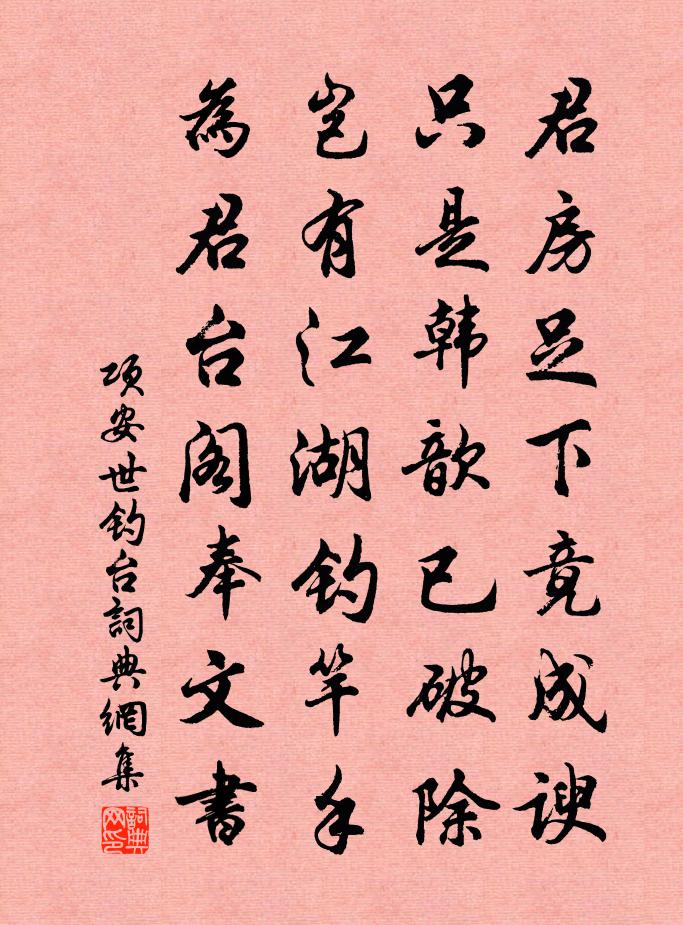 君房足下竟成諛
只是韩歆已破除
岂有江湖钓竿手
為君台阁奉文書
项安世钓台詞典網集
詞典网印